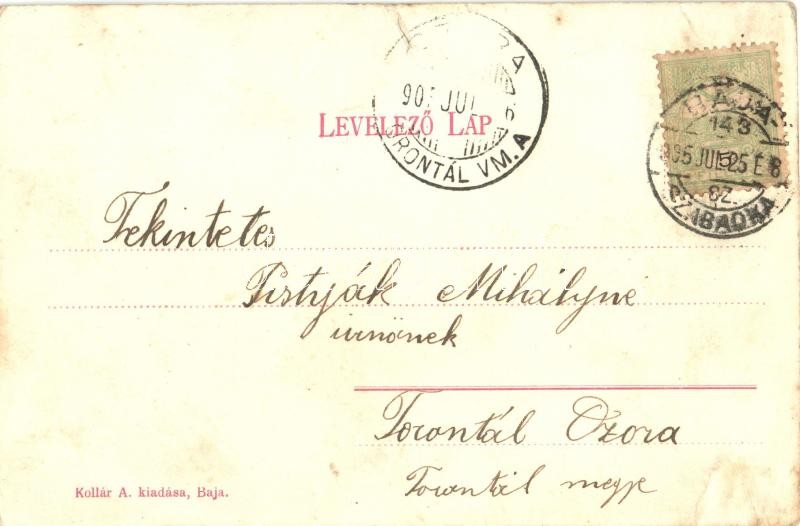 LEVELEZŐ LAP
905 JUL
TORONTÁL VM. A
BAJA
143
905 JUL 25 É 8
SZ.
SZABADKA
Tekintetes
Pistyják Mihályné
úrnőnek
Torontál Ozora
Torontál megye
Kollár A. kiadása, Baja.